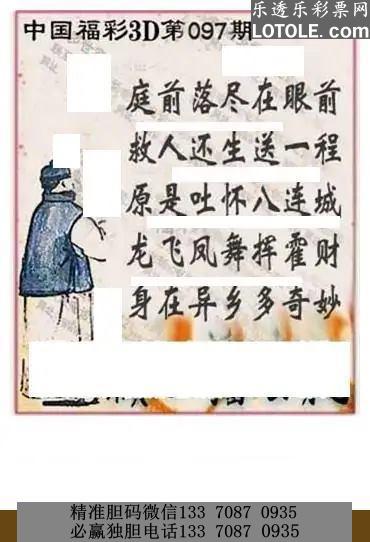 乐透乐彩票网
LOTOLE.COM
中国福彩3D第097期
庭前落尽在眼前
救人还生送一程
原是吐怀八连城
龙飞凤舞挥霍财
身在异乡多奇妙
精准胆码微信133 7087 0935
必赢独胆电话133 7087 0935